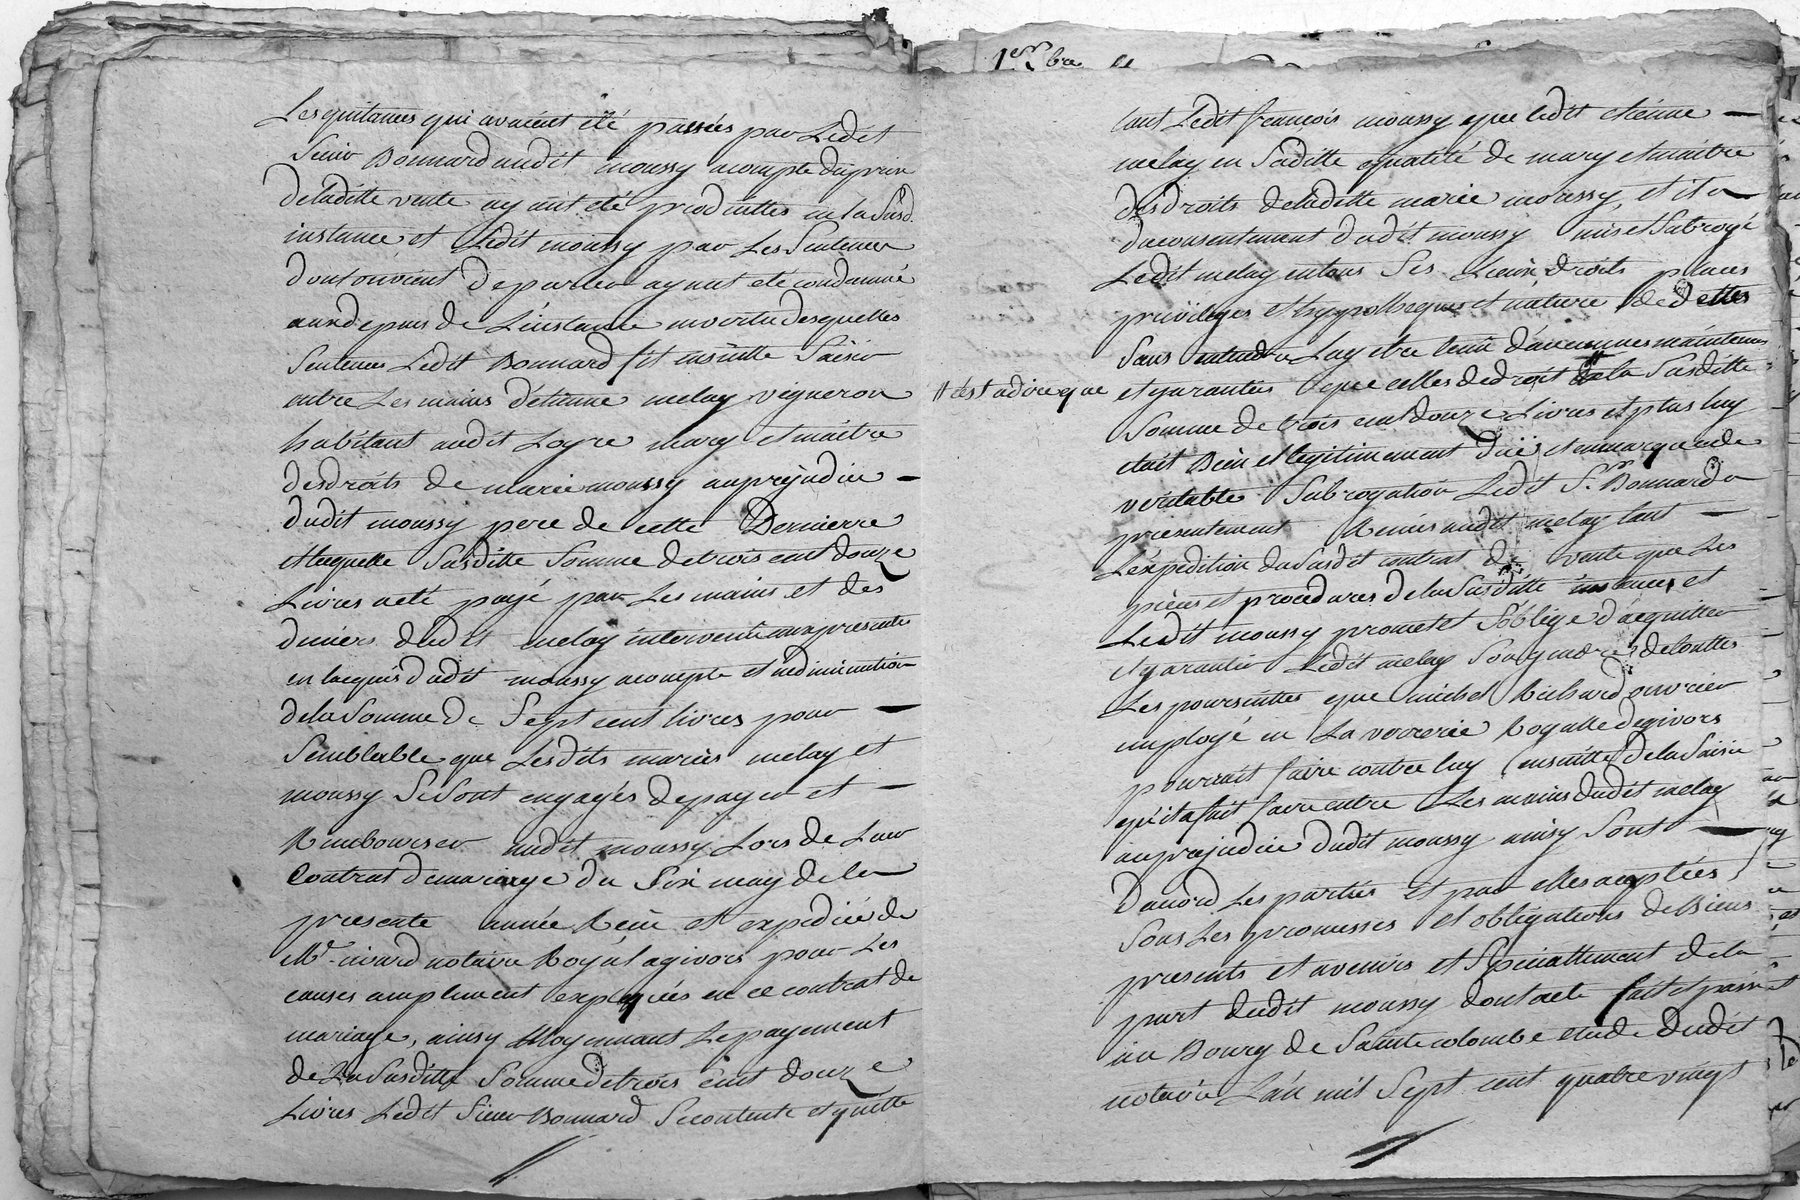 Les quitances qui avaient été passées par Ledit
Sieur Bonnard audit moussy acompte du prix
deladitte vente ayant été produittes en la Susd.
instance et Ledit moussy par Les Sentences
dont on vient deparler ayant eté condamné
aux depens de L'instance envertu desquelles
Sentences Ledit Bonnard fit ensuitte Saisir
entre Les mains d'étienne melay vigneron
habitant audit Loyre mary et maitre
desdroits de marie moussy auprejudice
dudit moussy pere de cette Dernierre
Laquelle Susditte Somme detrois cent douze
Livres a eté payé par Les mains et des
deniers dudit melay intervenu aux presentes
en lacquis dudit moussy acompte et endiminution
dela Somme de Sept cent livres pour
Semblable que Lesdits mariés melay et
moussy Se Sont engagés depayer et
Rembourser audit moussy Lors de Leur
Contrat demariage du Six may dela
presente année Reçu et expedié de
Me. notaire Royal agivors pour Les
causes amplement expliquées en ce contrat de
mariage, ainsy Moyennant Lepayement
de La Susditte Somme detrois cent douze
Livres Ledit Sieur Bonnard Secontente et quitte
1er. bre
tant Ledit françois moussy que ledit etienne
melay en Saditte qualité de mary et maitre
desdroits deladitte marie moussy, et il a
du consentement dudit moussy mis et Subrogé
Ledit melay entous Ses Lieux droits places
privileges et hypotheques et nature de dettes
Sans entendre Luy etre tenu d'aucunes maintenues
// c'est adire que
et garanties que celles dedroit // la Susditte
Somme de trois cent douze Livres et plus luy
etait Bien et legitimement düe et enmarque de
veritable Subrogation Ledit Sr. Bonnard a
presentement Remis audit melay tant
L'expedition du Susdit contrat de vente que Les
pieces et procedures dela Susditte instance, et
Ledit moussy promet et S'oblige d'acquitter
et garantir Ledit melay Son gendre detouttes
Les poursuittes que michel Richard ouvrier
employé en La verrerie Royalle degivors
pourrait faire contre luy ensuitte dela Saisie
qu'il a fait faire entre Les mains dudit melay
auprejudice dudit moussy ainsy Sont
Daccord Les parties et par elles acceptées
Sous Les promesses et obligations deBiens
presents et avenirs et Specialement de la
part dudit moussy dont acte fait et passé
au Bourg de Sainte colombe etude dudit
notaire L'an mil Sept cent quatre vingt